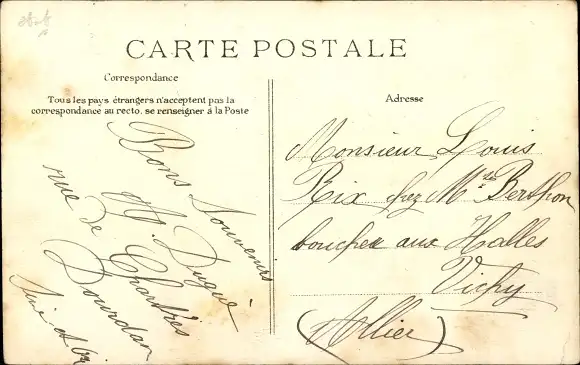 CARTE POSTALE
Correspondance
Tous les pays étrangers n'acceptent pas la
correspondance au recto. se renseigner à la Poste
Bons Souvenirs
A. Dugué
rue de Chartres
Dourdan
Adresse
Monsieur Louis
Rix chez Mr Berthon
boucher aux Halles
Vichy
(Allier)